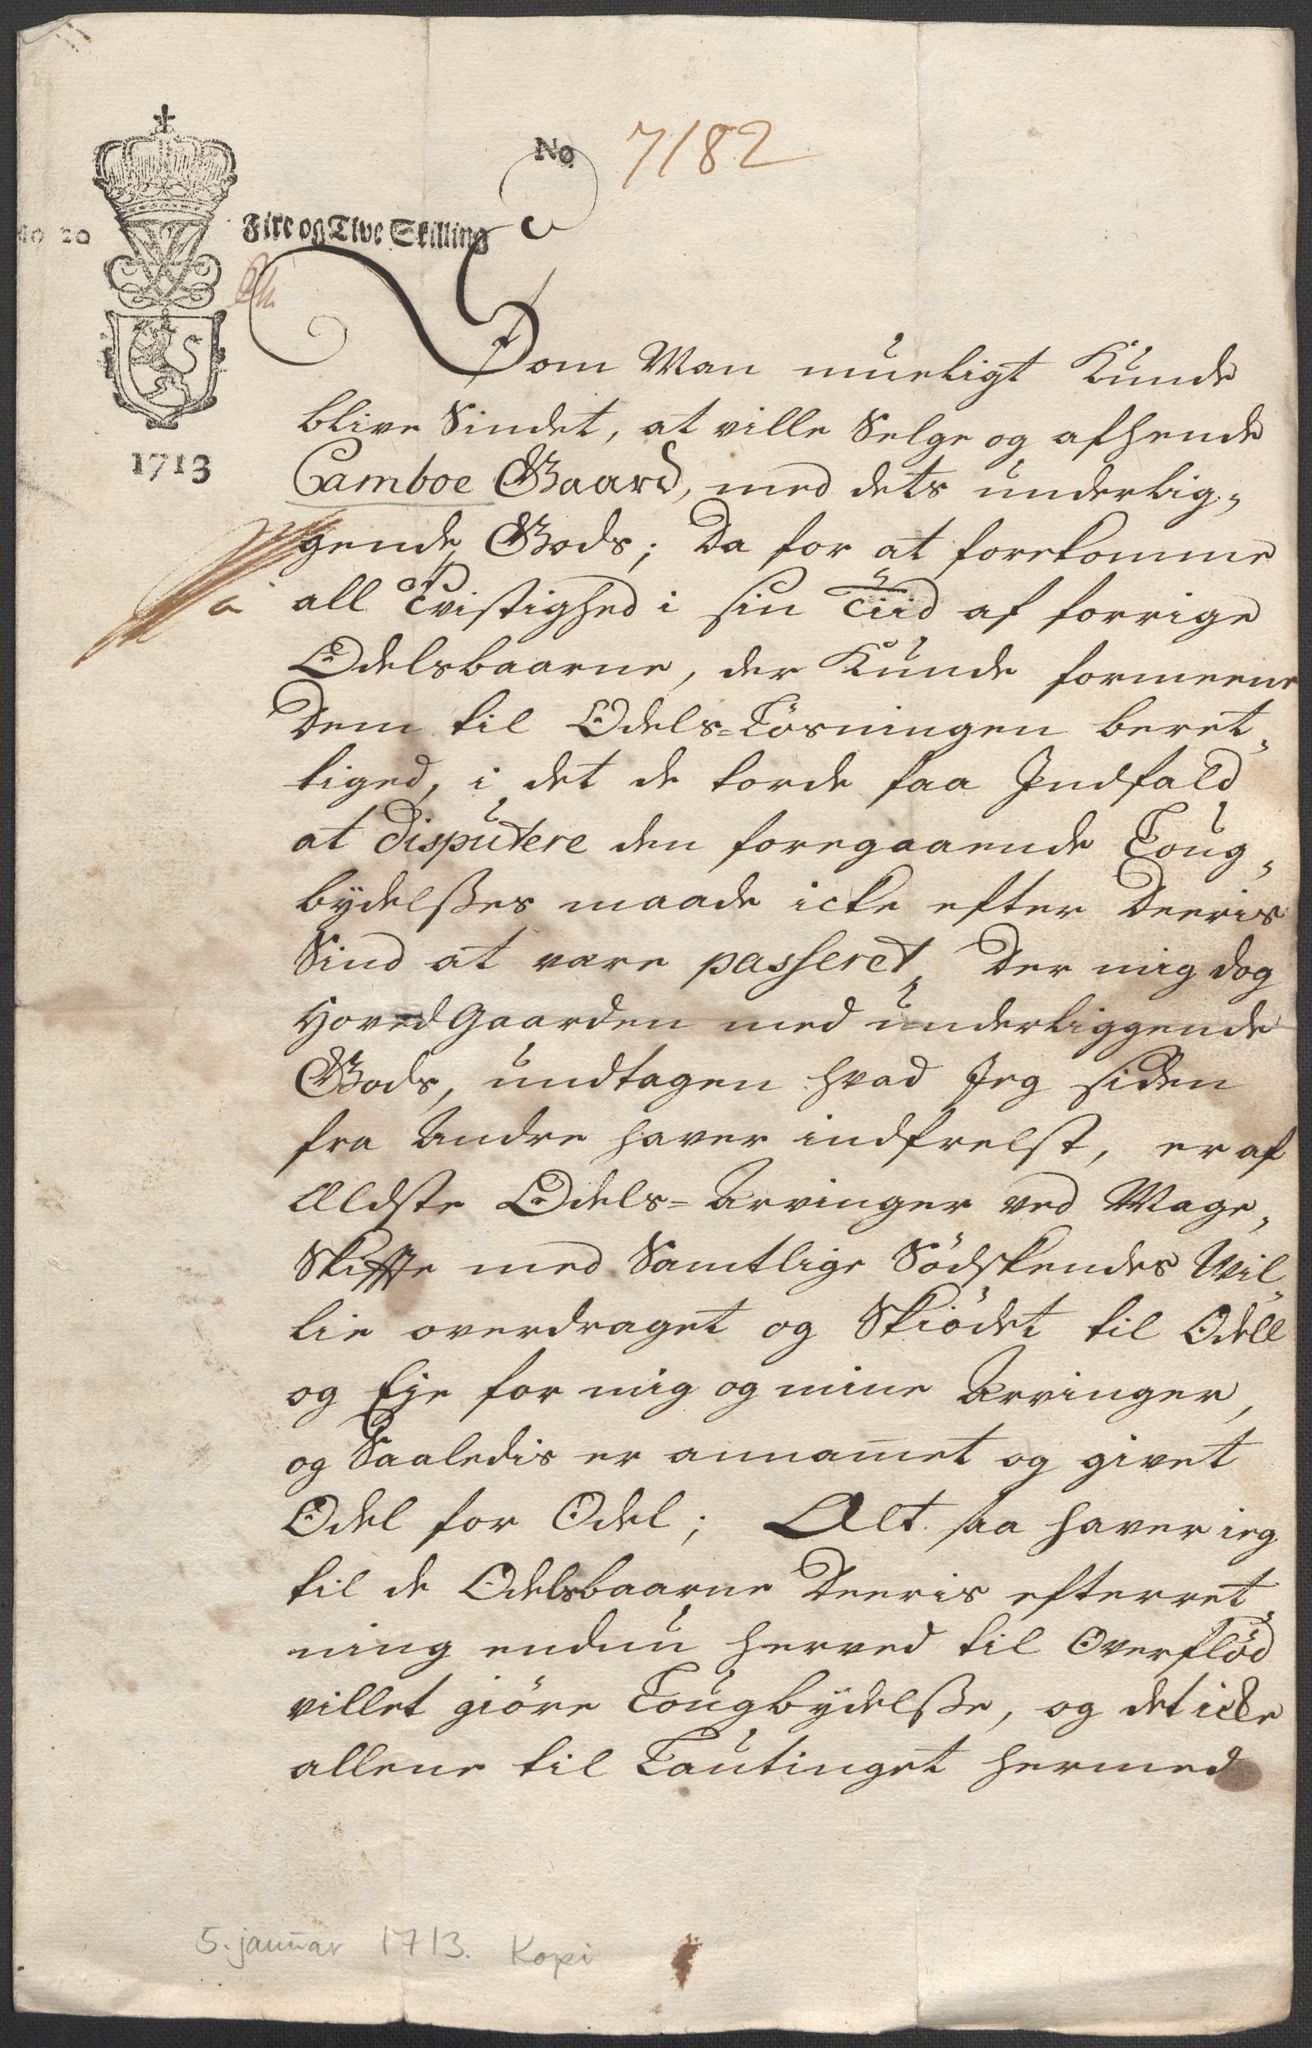 No 7182
No 20
Fire og Tive Skilling
1713
Som Man mueligt Kunde
blive Sindet, at ville Selge og afhende
Camboe Gaard, med dets underlig„
gende Gods; Da for at forekomme
all Tvistighed i sin Tiid af forrige
a
Odelsbaarne, der Kunde formeene
Dem til Odels-Løsningen beret„
tiged, i det de torde faa Indfald
at disputere den foregaaende Loug„
bydelsses maade icke efter Deeris
Sind at være passeret, Der mig dog
HovedGaarden med underliggende
Gods, undtagen hvad Jeg siden
fra Andre haver indfrelst, er af
Ældste Odels-Arvinger ved Mage„
Skiffte med Samtlige Södskendes Wil„
lie overdraget og Skiödet til Odell
og Eje for mig og mine Arvinger,
og Saaledis er annam̄et og givet
Odel for Odel; Alt saa haver ieg
til de Odelsbaarne Deeris efterret„
ning endnu herved til Overflöd
villet giöre Lougbydelsse, og det icke
allene til Lautinget hermed
5. januar 1713. Kopi